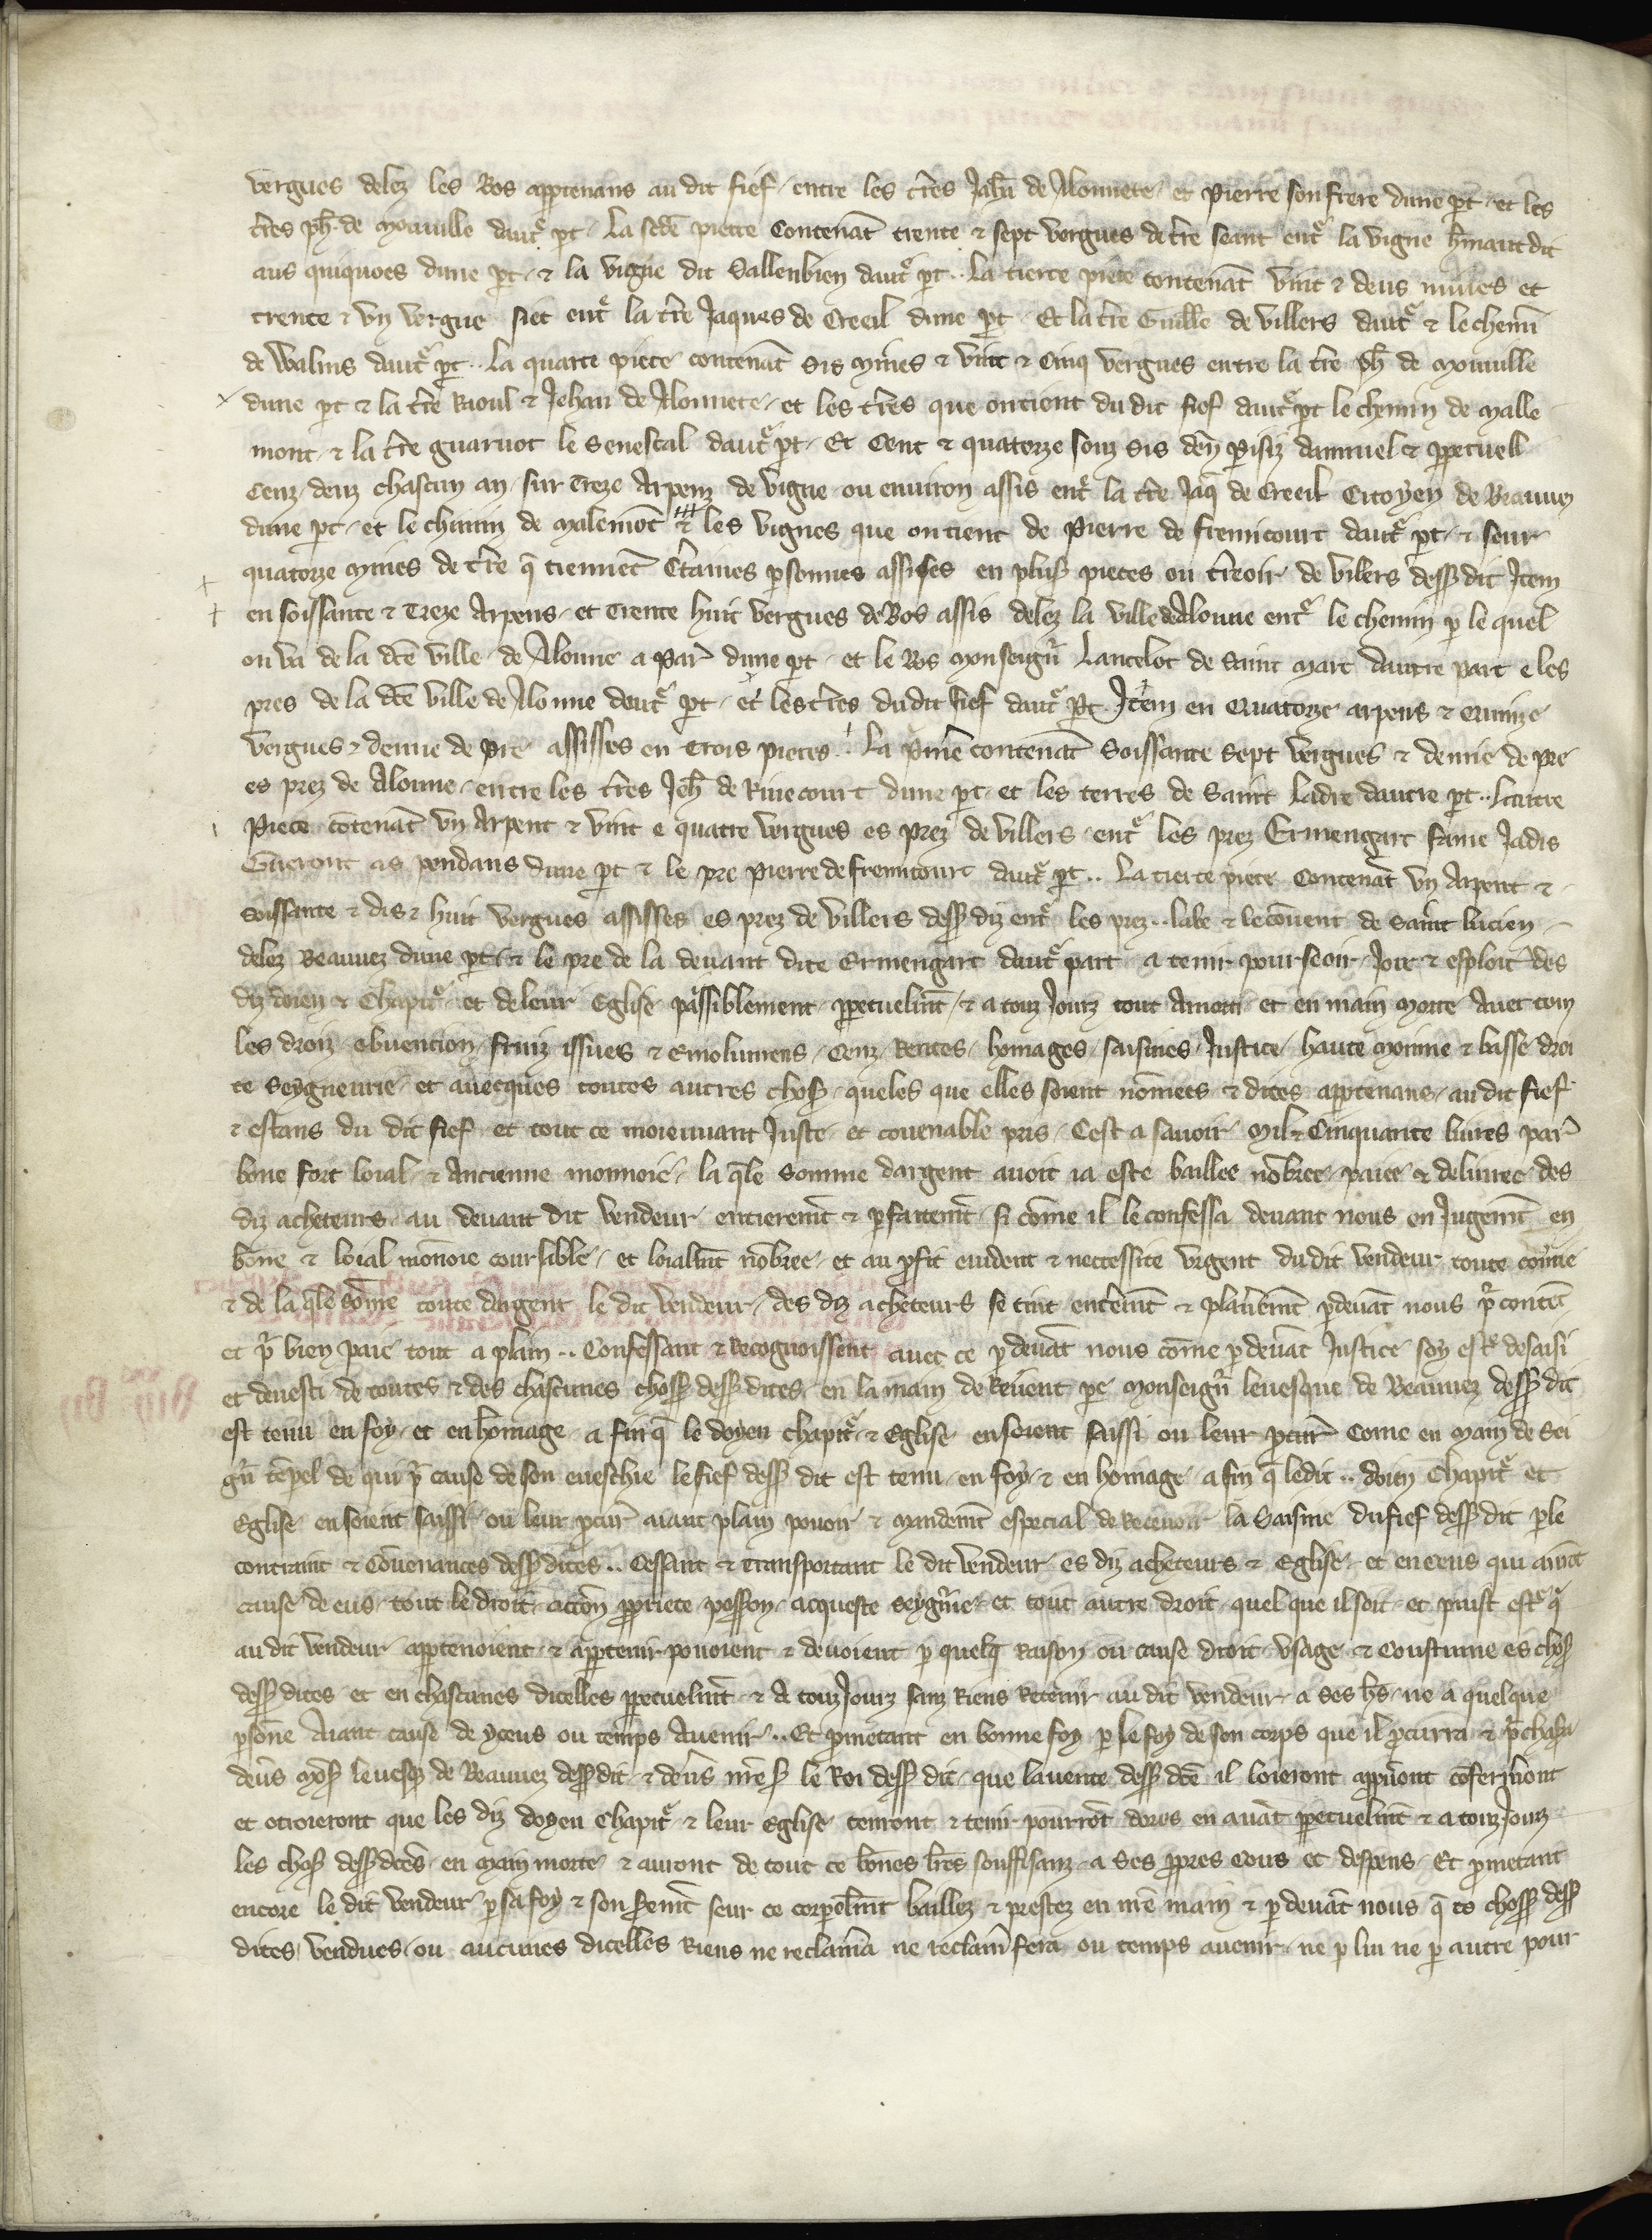 vergues delez les Bos apptenans au dit fief entre les tr̃es Jeh̃n de Alonnete et Pierre son frere dune pt et les
tr̃es ph̃ de Mouille daut͛ pt La scde piece Contenãt trente & sept vergues de tr̃e seant ent͛ la vigne h̃nautdit
aus quiquoes dune pt & la vigne dit Sallenbien daut͛ pt .. La tierce piece contenãt vint & deus mines et
trente & vn vergue siet ent͛ la tr̃e Jaques de Creeil dune pt Et la tr̃e Guill̃e de villers daut͛ & le chemĩ
de Walins daut͛ pt .. La quarte piece contenãt sis Mines & vint & Cinq vergues entre la tr̃e ph̃ de Mouille
dune pt & la tr̃e Raoul & Jehan de Alonnete et les tr̃es que ontient du dit fief daut͛ pt le chemin de Malle
mont & la tr̃e guaruot le Senescal daut͛ pt Et Cent & quatorze souz sis den̄ p̱isiz dannuel & ppetuell
Cenz deuz chascun an sur Treze Arpenz de vigne ou environ assis ent͛ la tr̃e Jaq̃ de Creeil Citoyen de Beauuez
dune pt et le chimin de Malemõt & les vignes que ontient de Pierre de fremicourt daut͛ pt & seur
quatorze Mines de tr̃e q̃ tiennẽt C͛taines psonnes assises en plus͛ pieces ou tr̃eoir de vilers dess͛ dit Jtem
en soissante & Treze Arpens et Trente huit vergues de Bos assis delez la ville de Alonne ent͛ le chemin p le quel
on va de la dc̃e ville de Alonne a Par͛ dune pt et le Bos Monseign͛ Lancelot de Saint Marc dautre part e les
pres de la dc̃e ville de Alonne daut͛ pt et les tr̃es du dit fief daut͛ pt Jtem en Quatorze arpens & Quinze
vergues & demie de pre assisses en Trois pieces .. La pmiẽ contenãt Soissante sept vergues & demie de pre
es prez de Alonne entre les tr̃es Jeh̃ de Riuecourt dune pt et les terres de Saint Ladre dautre pt .. Lautre
Piece cõtenãt vn Arpent & vint e quatre vergues es prez de villers ent͛ les prez Ermengart fame Jadis
Gueront as pendans dune pt & le pre Pierre de fremicourt daut͛ pt .. La tierce piece Contenãt vn Arpent &
soissante & dis & huit vergues assisses es prez de villers dess͛ diz ent͛ les prez .. labe & le cõuent de Saint lucien
delez Beauuez dune pt & le pre de la deuant dite Ermengart daut͛ part a tenir pourseoir Joir & esploit͛ des
diz doien & Chapit͛ et de leur Eglise paissiblement ppetuelmt̃ & a touz Jourz tout Amorti et en main Morte Auec touz
les droiz obuencion fruiz issues & Emolumens Cenz Rentes homages saisines Justice haute Moinne & basse droi
te Seygneurie et auecques toutes autres chos͛ queles que elles soient nõmees & dites apptenans au dit fief
& estans du dit fief et tout ce moiennant Juste et couenable pris Cest a sauoir Mil & Cinquante liures par͛
bone fort loial & Ancienne monnoie la q̃le somme dargent auoit ia este baillee nõbree paiee & deliuree des
diz acheteurs au deuant dit vendeur entieremt̃ & pfaitemt̃ si cõme il le confessa deuant nous en Jugemt̃ en
bõne & loial monoie coursable et loialmt̃ nõbree et au pfit euident & neccessite vrgent du dit vendeur toute cõuie
& de la q̃le sõme toute dargent le dit vendeur des diz acheteurs se tint ent͛emt̃ & plan͛emt̃ pdeuãt nous p͛ contẽt
et p͛ bien paie tout a plain .. Confessant & Recognoissent auec ce p deuãt nous cõme p deuãt Justice soy est͛ desaisi
et deuesti de toutes & des chascunes choss͛ dess͛ dites en la main de Reuent pe Monseign͛ leuesque de Beauuez dess͛ dit
est tenu en foy et en h̃omage a fin q̃ le doyen chapit͛ & Eglise en soient saissi ou leur pcur͛ Come en Main de Sei
gn͛ tẽpel de qui p͛ cause de son eueschie le fief dess͛ dit est tenu en foy & en homage a fin q̃ ledit .. doien Chapit͛ et
Eglise en soient saissi ou leur pcur͛ aiant plain pouoir & Mandemt̃ especial de Receuoir la Saisine du fief dess͛ dit p le
contraut & Cõuenances dess͛ dites .. Cessant & Transportant le dit vendeur es diz acheteurs & Eglise et en ceus qui aurõt
cause de eus tout le droit accõn ppriete poss͛on acqueste seygn͛ie et tout autre droit quel que il soit et puist est͛ q̃
au dit vendeur apptenoient & apptenir pouoient & deuoient p quelq̃ Raison ou cause droit vsage & Coustume es chos͛
dess͛ dites et en chascunes dicelles ppetuelmt̃ & A touz Jourz sanz Riens Retenir au dit vendeur a ses h̃s ne a quelque
psõne Aiant cause de yceus ou temps Auenir .. Et pmetant en bonne foy p le foy de son corps que il pcurra & p͛chasa
deu͛s Mos͛ leuesq̃ de Beauuez dess͛ dit & deu͛s nr̃e s͛ le Roi dess͛ dit que la vente dess͛ dc̃e il loieront appu͛ont cõferm͛ont
et otroieront que les diz doyen Chapit͛ & leur Eglise tenront & tenir pourrõt dores en auãt ppetuelmt̃ & a touz Jourz
les chos͛ dess͛ dc̃es en Main morte & auront de tout ce bõnes lr̃es souffisanz a ses ppres cous et despens Et pmetant
encore le dit vendeur p sa foy & son s͛emt̃ seur ce corpelmt̃ baillez & prestez en nr̃e main & p deuãt nous q̃ es choss͛ dess͛
dites vendues ou aucunes dicelles Riens ne reclam͛a ne reclam͛ fera ou temps auenir ne p lui ne p autre pour